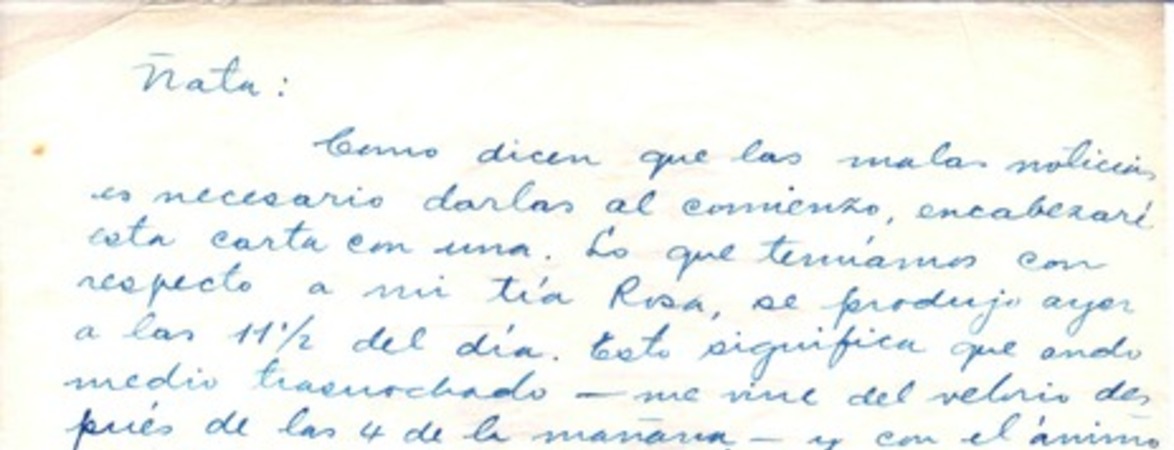 Ñata:
Como dicen que las malas noticias
es necesario darlas al comienzo, encabezaré
esta carta con una. Lo que temíamos con
respecto a mi tía Rosa, se produjo ayer
a las 11 1/2 del día. Esto significa que ando
medio trasnochado — me vine del velorio des
pués de las 4 de la mañana — y con el ánimo